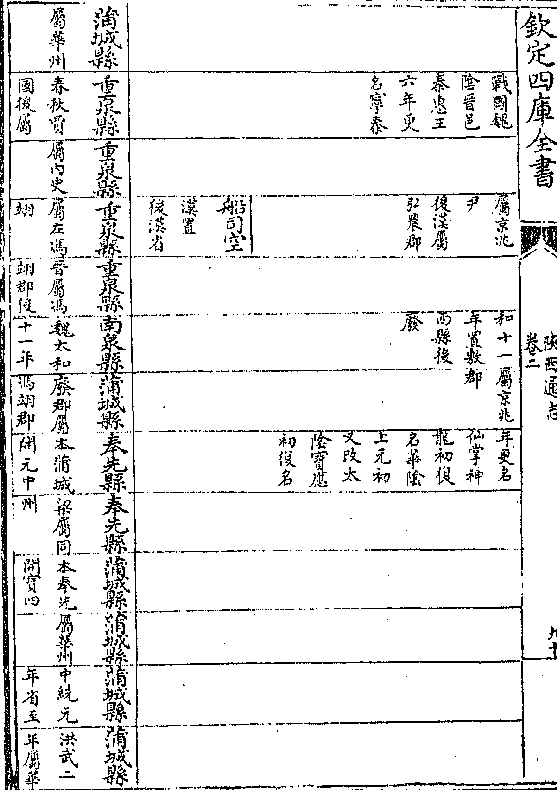 欽定四庫全書
陝西通志
卷三
蒲城縣
屬華州
戰國魏
陰晉邑
秦惠王
六年更
名寧秦
重泉縣
春秋賈
國後屬
重泉縣
屬內史
屬京兆
尹
後漢屬
弘農郡
船司空
漢置
後漢省
重泉縣
屬左馮
翊
重泉縣
晉屬馮
翊郡後
和十一
年置敷
西縣後
廢
南泉縣
魏太和
十一年
屬京兆
郡
蒲城縣
廢郡屬
馮翊郡
年更名
仙掌神
龍初復
名華陰
上元初
又改太
陰寶應
初復名
奉先縣
本蒲城
開元中
奉先縣
梁屬同
州
蒲城縣
本奉先
開寶四
蒲城縣
屬華州
蒲城縣
中統元
年省至
蒲城縣
洪武二
年屬華